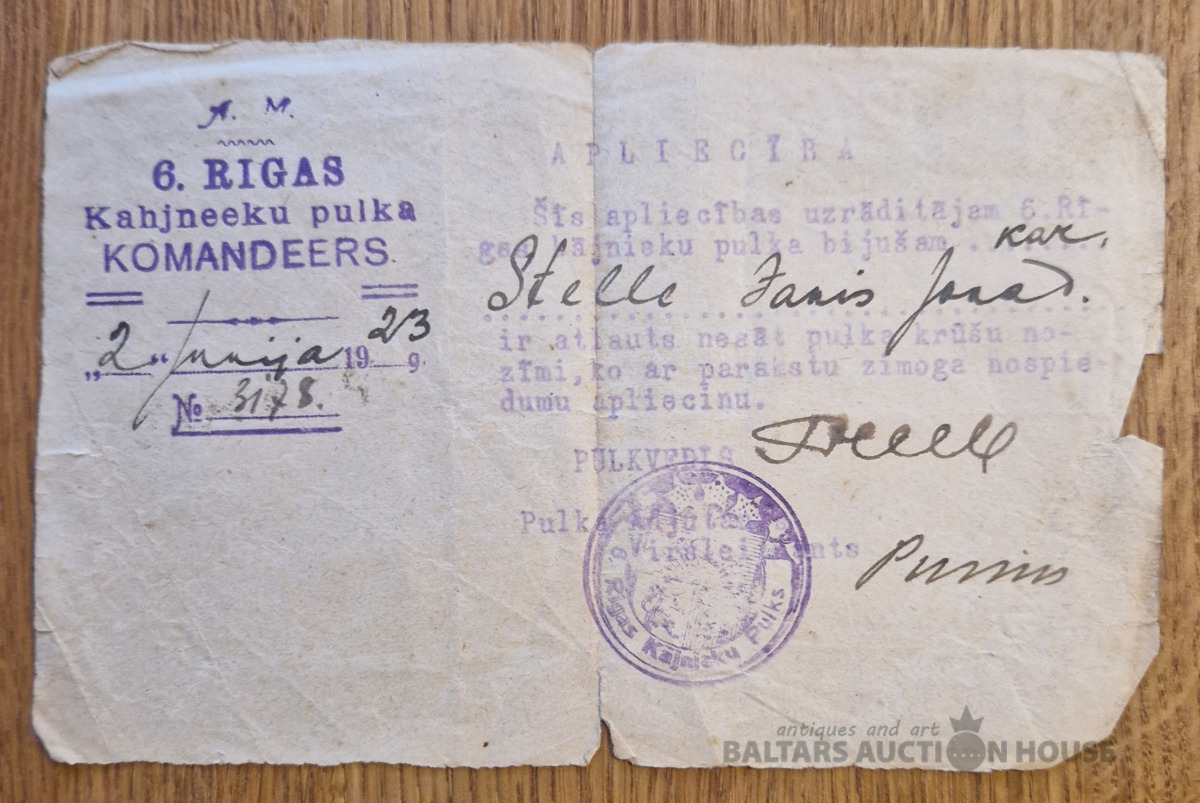 A. M.
6. RIGAS
Kahjneeku pulka
KOMANDEERS.
„2“ Junija 1923 g.
№ 3178.
APLIECĪBA
Šīs apliecības uzrādītājam 6.Rī-
gas kājnieku pulka bijušam kar.
Stelle Žanis Jāņa d.
ir atļauts nesāt pulka krūšu no-
zīmi, ko ar parakstu zīmoga nospie-
dumu apliecinu.
PULKVEDIS
Pulka Adjutants
Virsleitnants
Rīgas Kājnieku Pulks
antiques and art
BALTARS AUCTION HOUSE